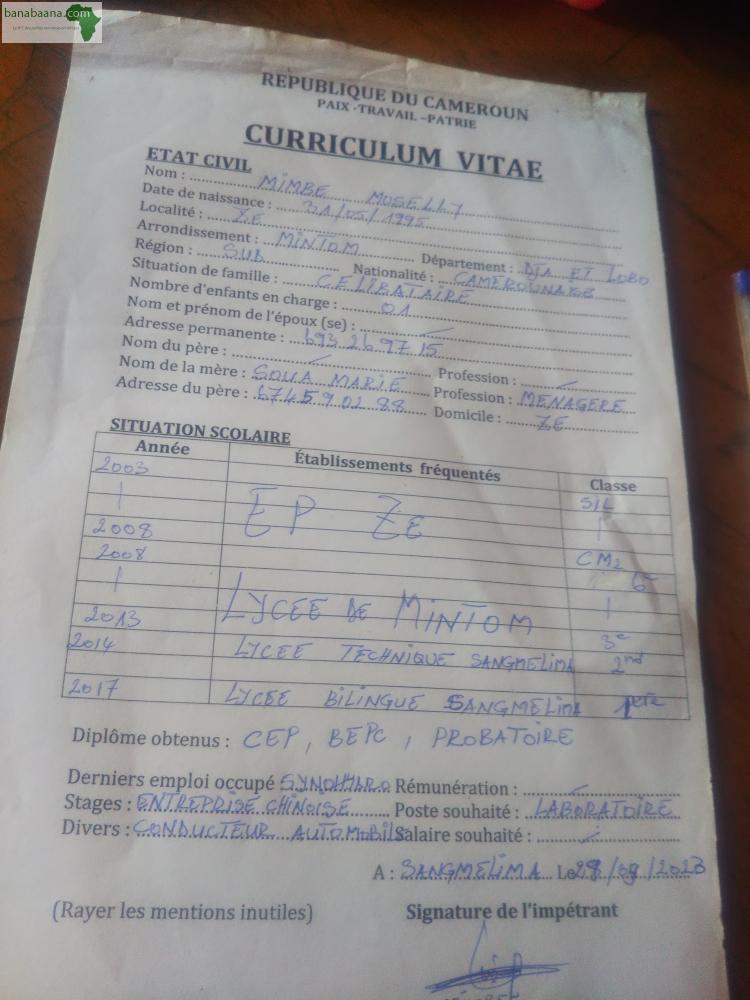 banabaana.com
REPUBLIQUE DU CAMEROUN
PAIX -TRAVAIL –PATRIE
CURRICULUM VITAE
ETAT CIVIL
Nom : MIMBE MOSELLY
Date de naissance : 31/05/1995
Localité : ZE
Arrondissement : MINTOM Département : DJA ET LOBO
Région : SUD Nationalité : CAMEROUNAISE
Situation de famille : CELIBATAIRE
Nombre d'enfants en charge : 01
Nom et prénom de l'époux (se) :
Adresse permanente : 693 26 97 15
Nom du père : Profession :
Nom de la mère : SOUA MARIE Profession : MENAGERE
Adresse du père : 674590288 Domicile : ZE
SITUATION SCOLAIRE
Année Établissements fréquentés Classe
2003 SIL
EP ZE
2008
2008 CM2
6e
LYCEE DE MINTOM
2013 3e
2014 LYCEE TECHNIQUE SANGMELIMA 2nd
2017 LYCEE BILINGUE SANGMELIMA
Diplôme obtenus : CEP, BEPC, PROBATOIRE
Derniers emploi occupé SYNOHYDRO Rémunération :
Stages : ENTREPRISE CHINOISE Poste souhaité : LABORATOIRE
Divers : CONDUCTEUR AUTOMOBILE Salaire souhaité :
A : SANGMELIMA Le 28/09/2023
(Rayer les mentions inutiles) Signature de l'impétrant